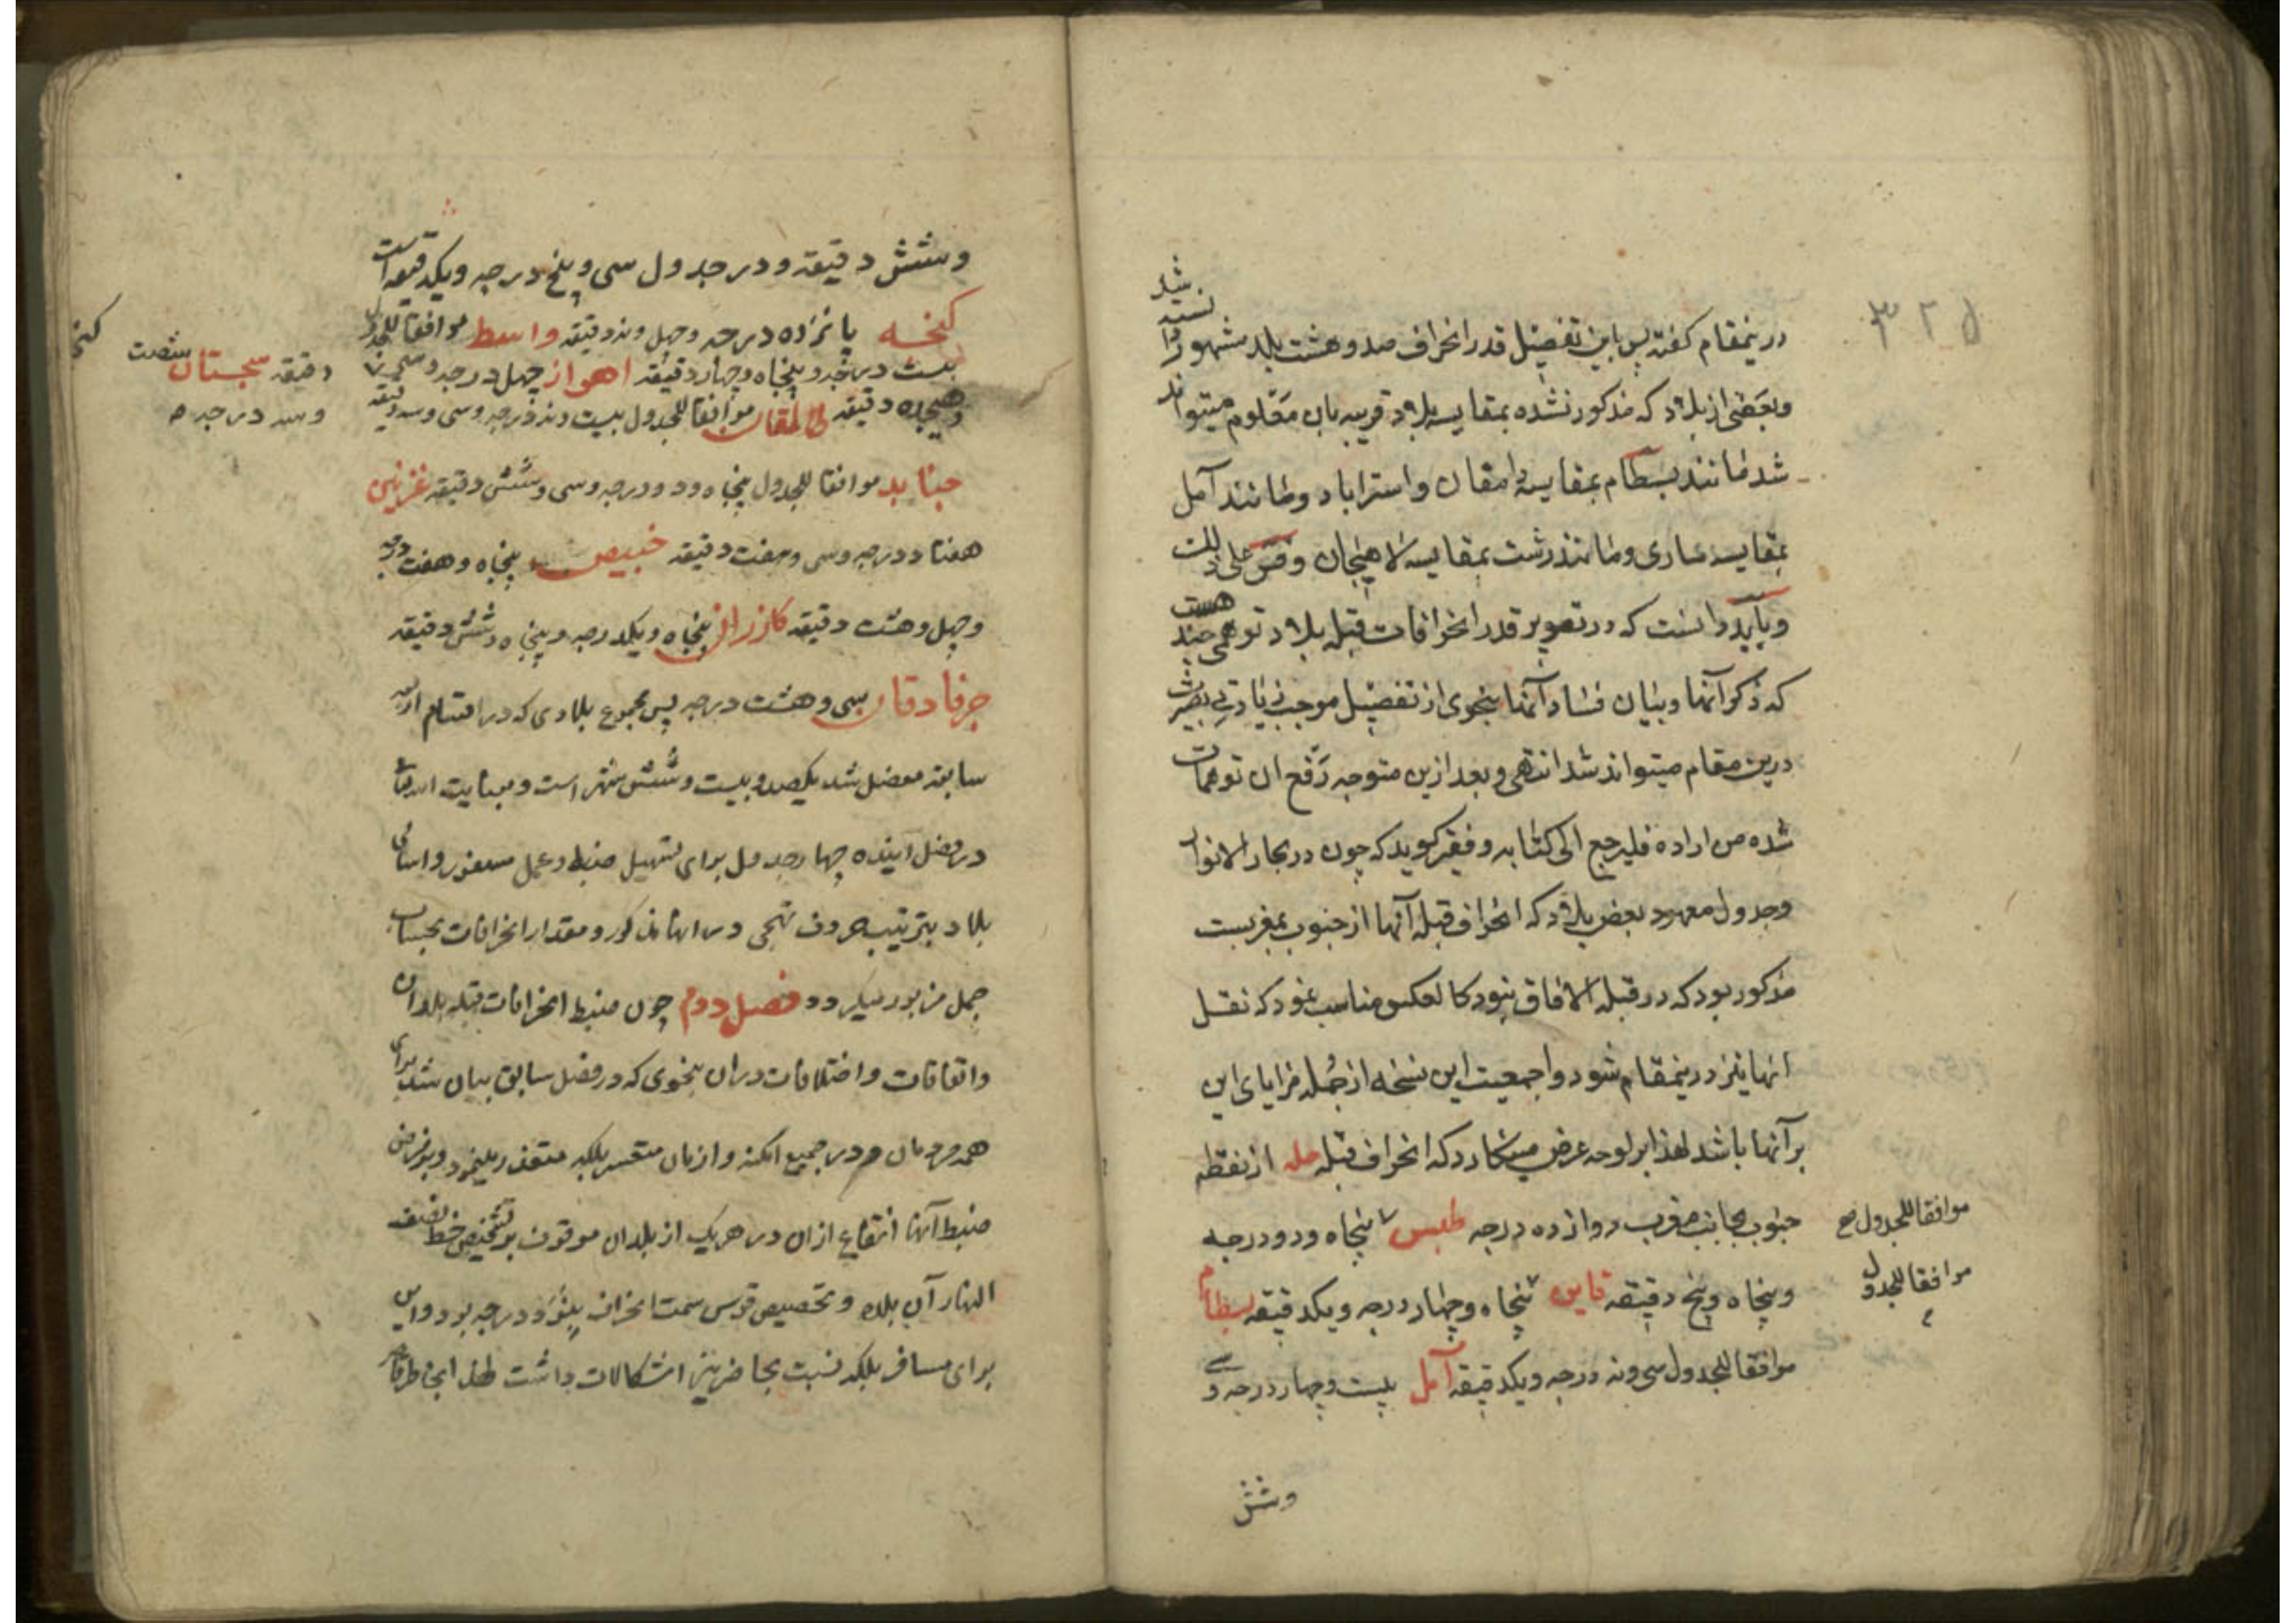 درینمقام گفته پس باین تفضیل قدر انحراف صد و هشت بلد مشهور دانسته شد
و بعضی از بلاد که مذکور نشده بمقایسه بلاد قریبه بان معلوم میتواند
شد مانند بسطام بمقایسه دامغان و استراباد و مانند آمل
بمقایسه ساری و مانند رشت بمقایسه لاهیجان و قس علی ذلک
و باید دانست که در تصویر قدر انحرافات قبله بلاد توهمی چند هست
که ذکر آنها و بیان فساد آنها بنحوی از تفضیل موجب زیادتی بصیرت
درین مقام میتواند شد انتهی و بعد ازین متوجه رفع ان توهمات
شده من اراده فلیرجع الی کتابه و فقیر گوید که چون در بحار الانوار
و جدول معهود بعض بلاد که انحراف قبله آنها از جنوب بمغربست
مذکور بود که در قبلة الافاق نبود کالعکس مناسب نمود که نقل
انها نیز درینمقام شود و اجمعیت این نسخه از جمله مزایای این
بر آنها باشد لهذا بر لوحه عرض مینگارد که انحراف قبله حله از نقطه
جنوب بجانب مغرب دوازده درجه طبس پنجاه و دو درجه
موافقا للجدول صح
و پنجاه و پنج دقیقه قاین پنجاه و چهار درجه و یکدقیقه بسطام
موافقا للجدول
موافقا للجدول سی و نه درجه و یکدقیقه آمل بیست و چهار درجه و سی
وشش
وشش دقیقه و در جدول سی و پنج درجه و یکدقیقه است
گنجه پانزده درجه و چهل و نه دقیقه واسط موافقا للجدول
بیست درجه و پنجاه و چهار دقیقه اهواز چهل درجه و سی
دقیقه سجستان شصت
و سه درجه
و هیجده دقیقه طالقان موافقا للجدول بیست و نه درجه و سی و سه دقیقه
جنابد موافقا للجدول پنجاه و دو درجه و سی و شش دقیقه غزنین
هفتاد درجه و سی و هفت دقیقه خبیص پنجاه و هفت درجه
و چهل و هشت دقیقه کازران پنجاه و یکدرجه و پنجاه و شش دقیقه
جرفادقان سی و هشت درجه پس مجموع بلادی که در اقسام اربعه
سابقه مفضل شد یکصد و بیست و شش شهر است و بعنایت الله تعالی
در فصل آینده چهار جدول برای تسهیل ضبط و عمل و اسامی
بلاد بترتیب حروف تهجی در انها مذکور و مقدار انحرافات بحساب
جمل مزبور میگردد فصل دوم چون ضبط انحرافات قبله بلدان
و اتفاقات و اختلافات دران بنحوی که در فصل سابق بیان شد برای
همه مردمان و در جمیع امکنه و ازمان متعسر بلکه متعذر مینمود و بر فرض
ضبط آنها انتفاع ازان در هریک از بلدان موقوف بر تشخیص خط نصف
النهار آن بلده و تحصیص قوس سمت انحراف بنود درجه بود و این
برای مسافر بلکه نسبت بحاضر نیز اشکالات داشت لهذا